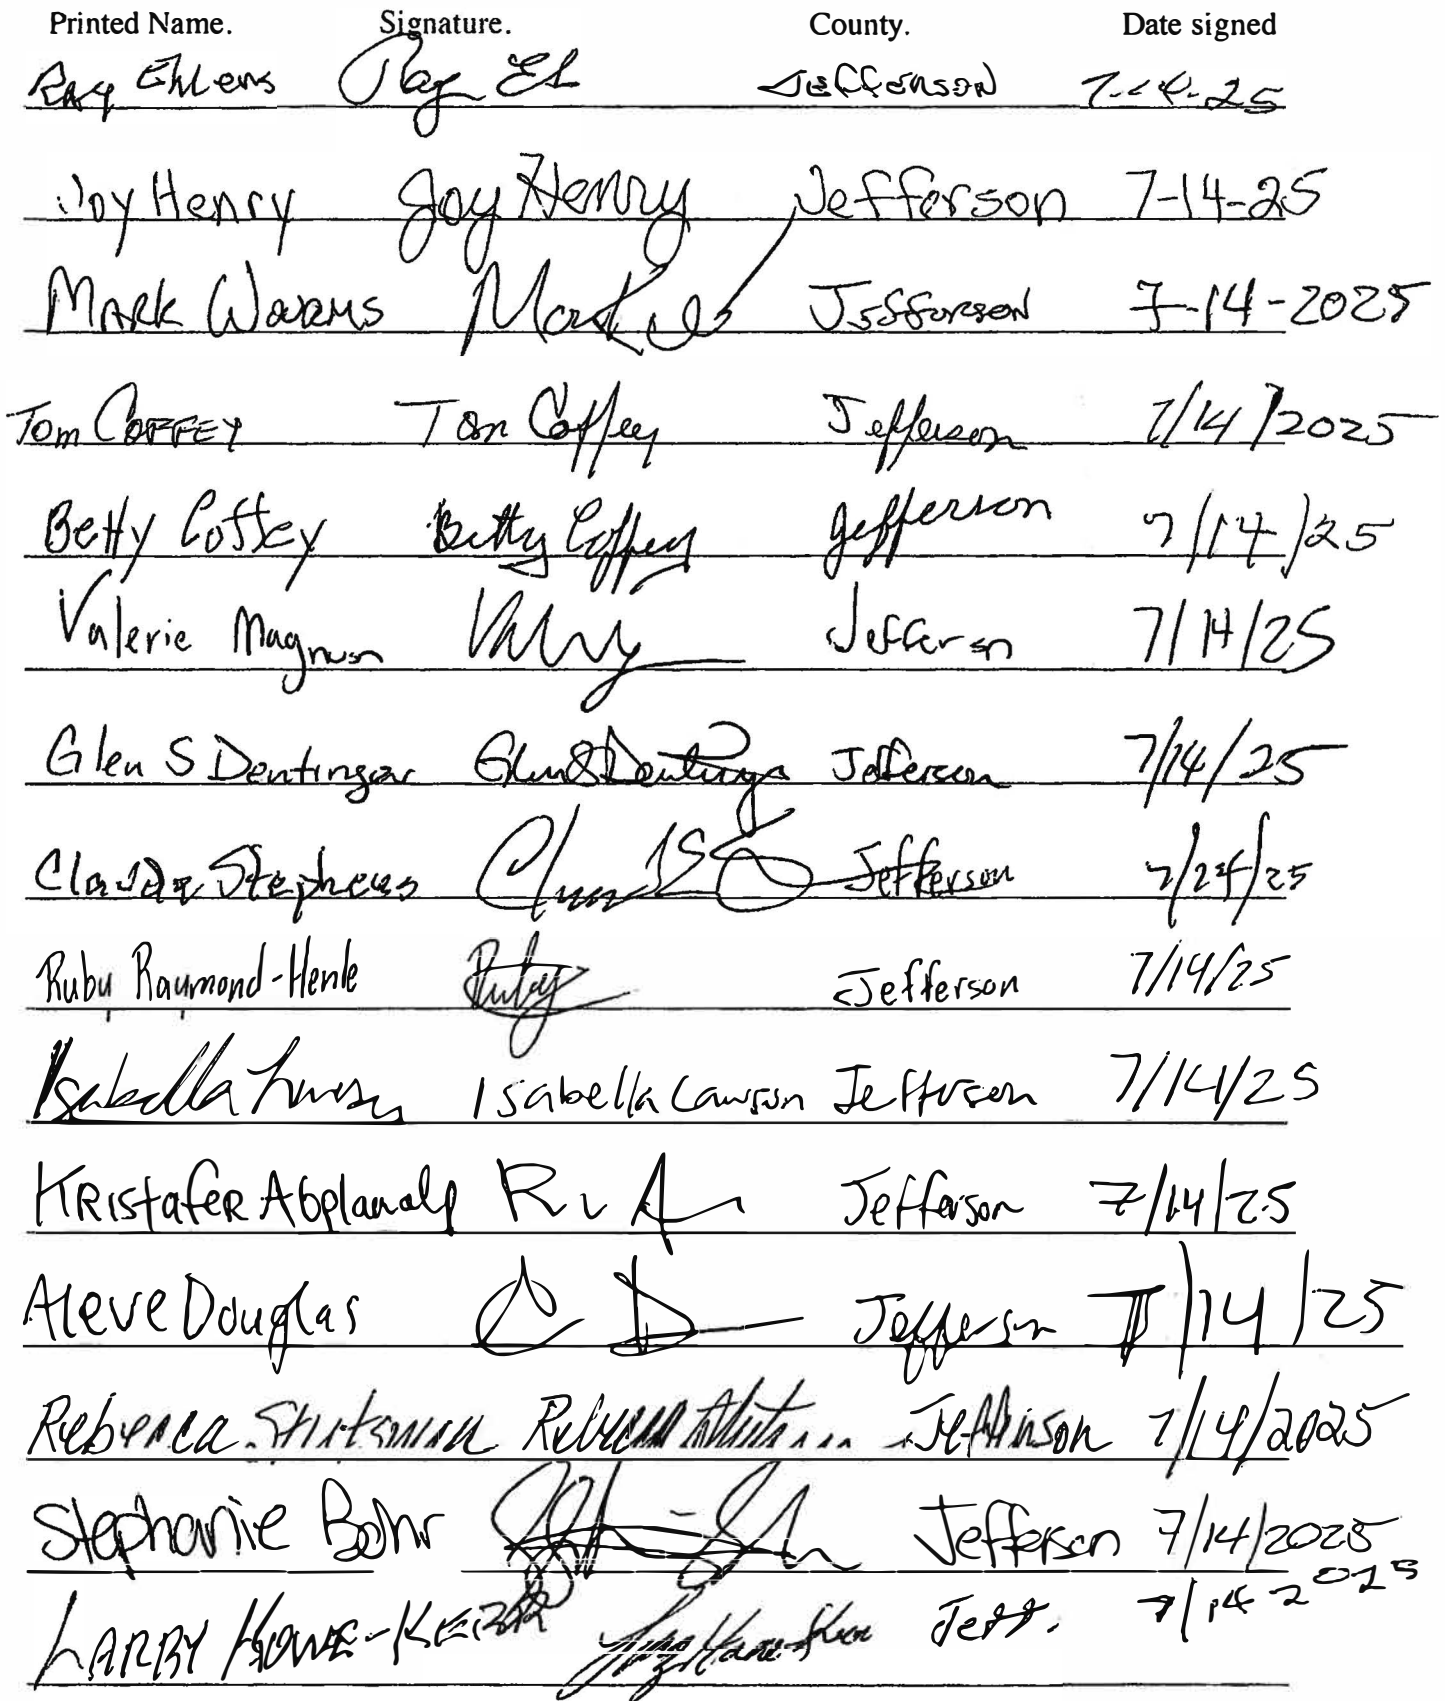 Printed Name. Signature. County. Date signed
Ray Ehlens Ray Jefferson 7-14-25
Joy Henry Joy Henry Jefferson 7-14-25
Mark Mark Jefferson 7-14-2025
Tom Coffey Tom Coffey Jefferson 7/14/2025
Betty Coffey Betty Coffey Jefferson 7/14/25
Valerie Magnuson Jefferson 7/14/25
Glen S Dentinger Glen S Dentinger Jefferson 7/14/25
Stephens Jefferson 7/24/25
Ruby Raymond-Henle Ruby Jefferson 7/14/25
Isabella Lawson Isabella Lawson Jefferson 7/14/25
Kristafer Abplanalp Jefferson 7/14/25
Aleve Douglas Jefferson 7/14/25
Rebecca Stutsman Rebecca Jefferson 7/14/2025
Stephanie Bohr Jefferson 7/14/2025
Larry Howe-Keizer Jeff. 7/14 2025